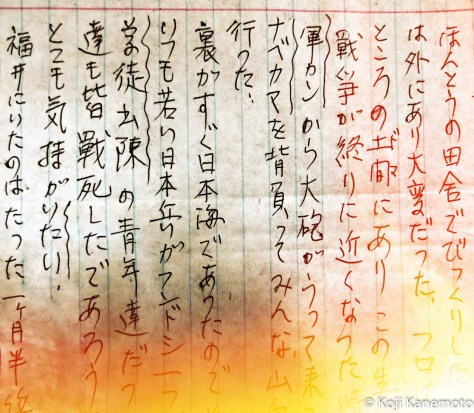 ほんとうの田舎でびっくりした
は外にあり大変だった。フロ
ところの にあり この生
戦争が終りに近くなった
軍カンから大砲がうって来
ナベカマを背負ってみんな山
行った。
裏がすぐ日本海であったので
いつも若い日本兵がフンドシ一つ
学徒出陳の青年達だっ
達も皆戦死したであろう
とても気持がいたい。
福井にいたのはたった一ヶ月半
© Koji Kanemoto